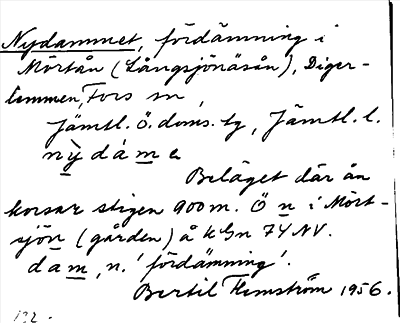 Nydammet, fördämning i
Mörtån (Långsjönäsån), Diger-
lemmen, Fors sn,
Jämtl. Ö. doms. tg, Jämtl. l.
nỳdáme
Beläget där ån
korsar stigen 900 m. Ö n i Mört-
sjön (gården) å kbn 74 NV.
dam, n. 'fördämning'.
Bertil Flemström 1956.
132.